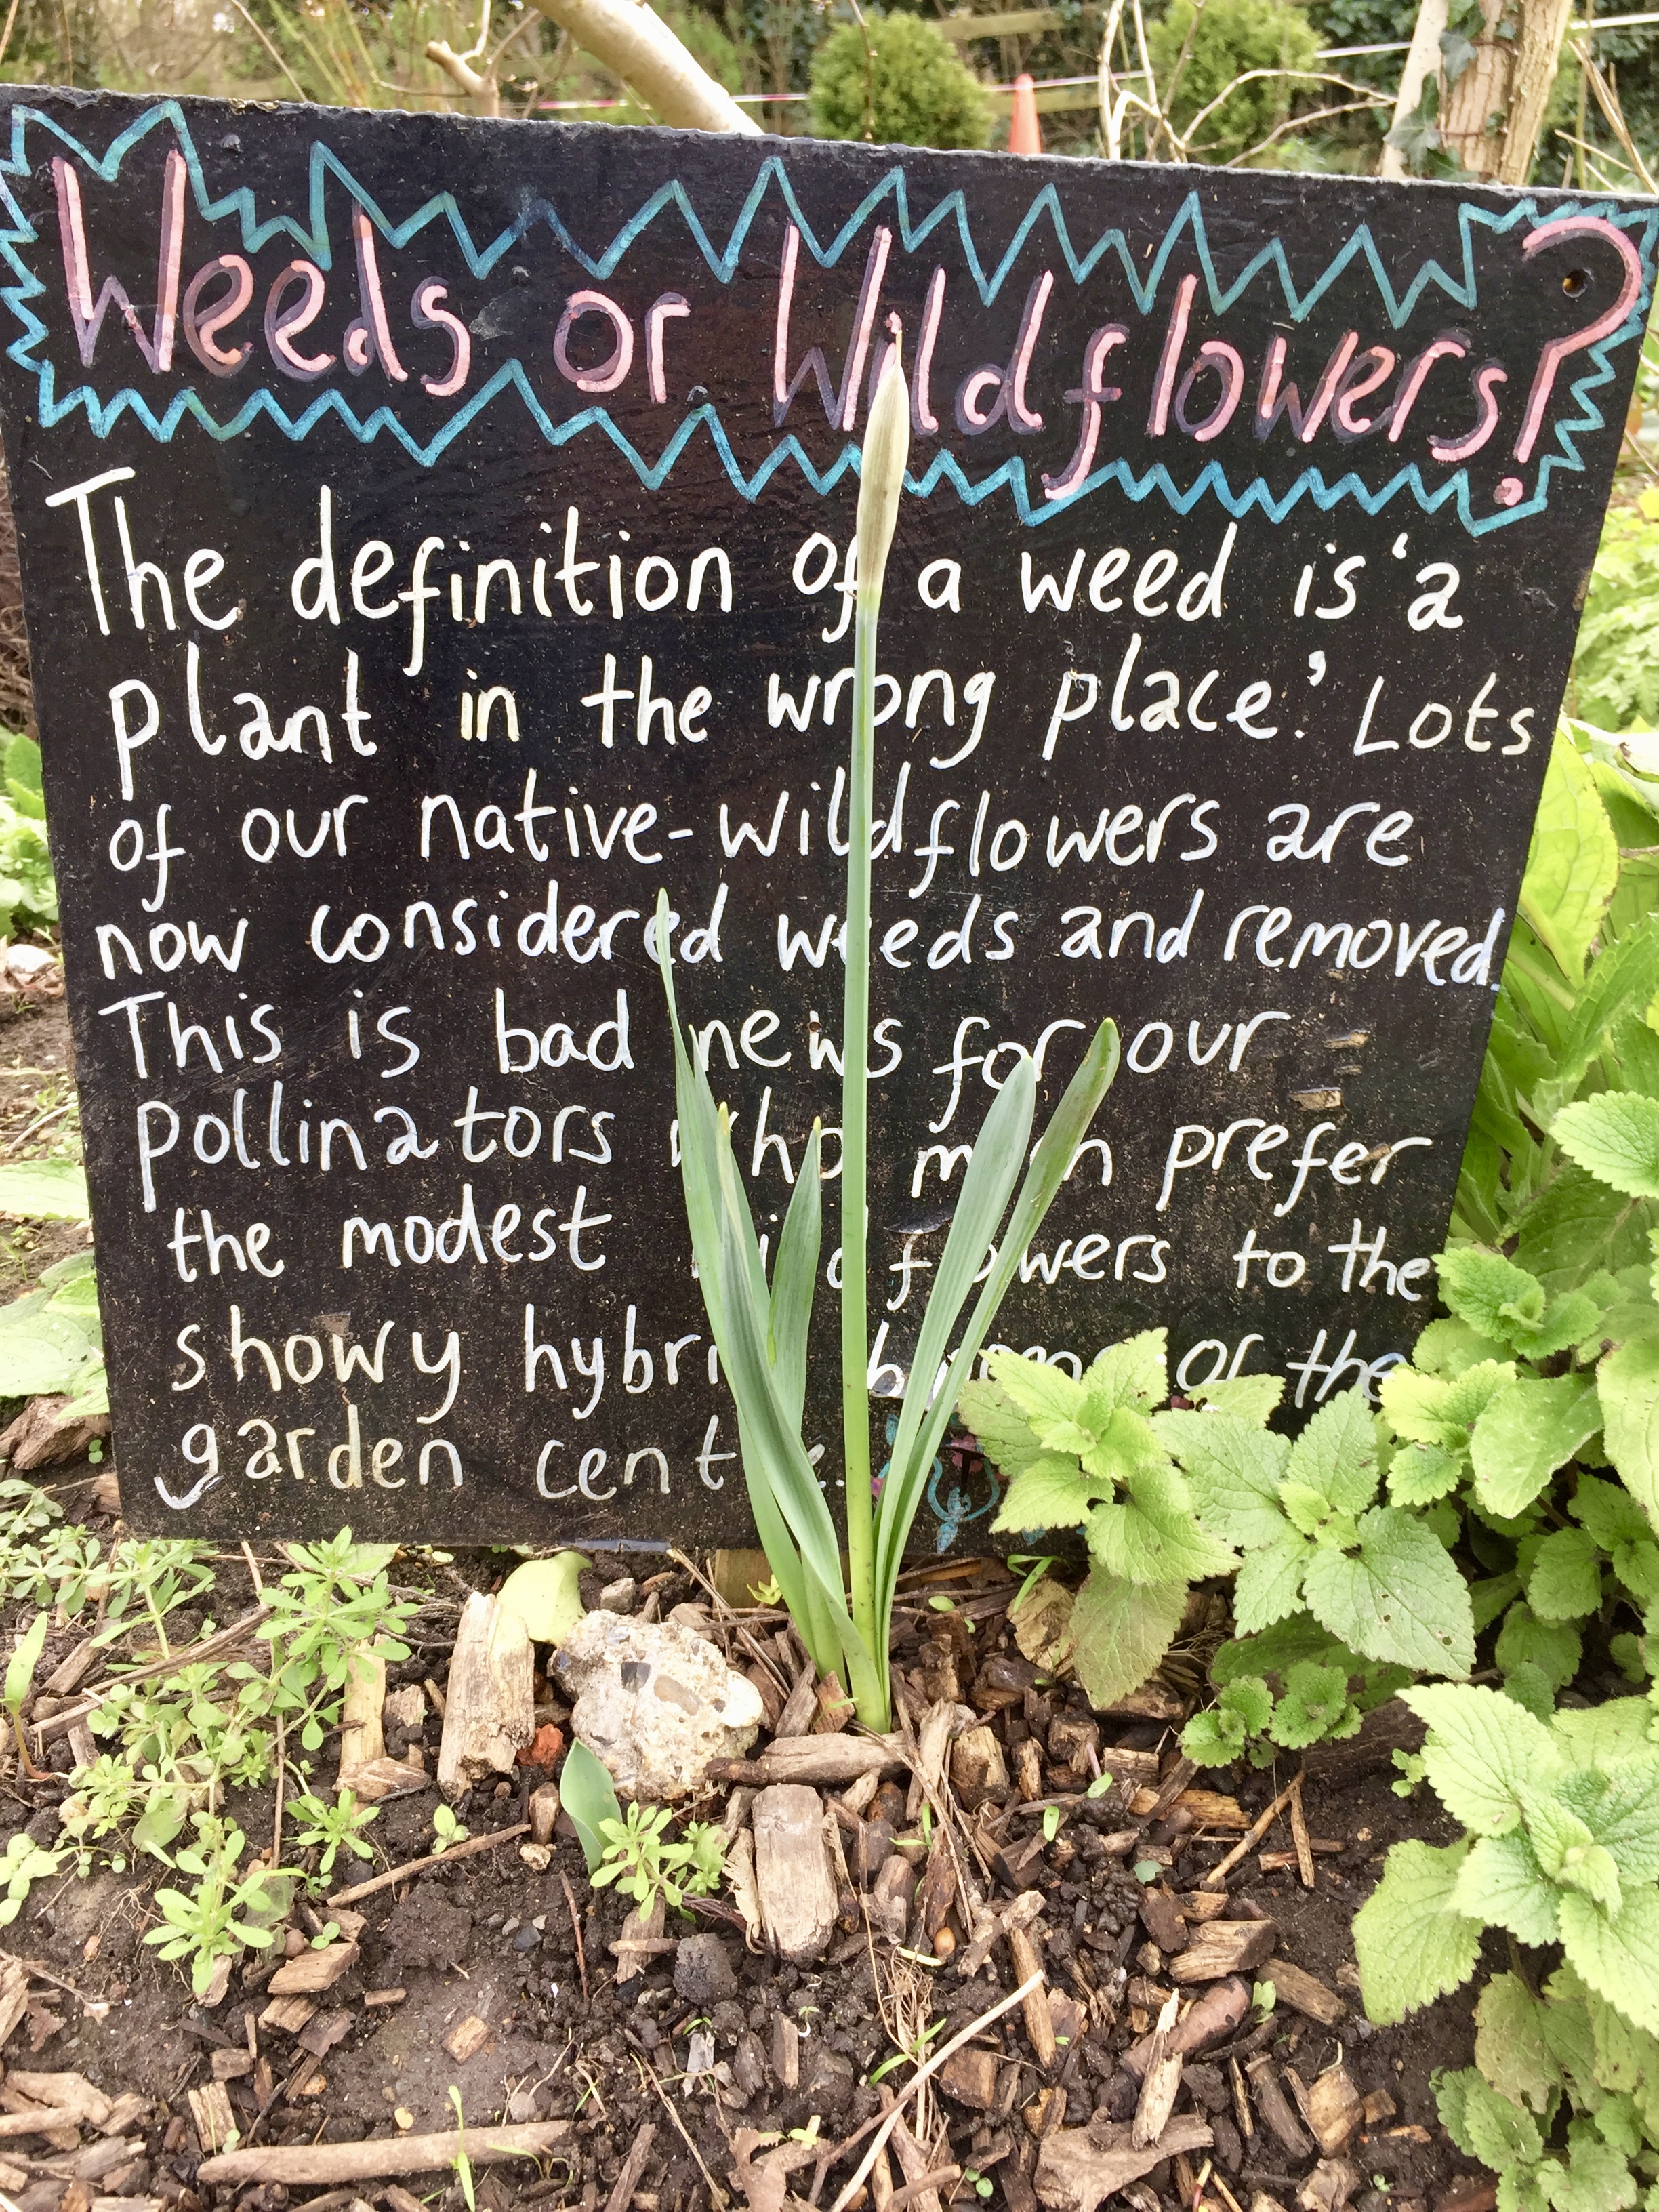 Weeds or Wildflowers?
The definition of a weed is 'a
plant in the wrong place.' Lots
of our native-wildflowers are
now considered weeds and removed.
This is bad news for our
pollinators who much prefer
the modest wildflowers to the
showy hybrid blooms of the
garden centre.